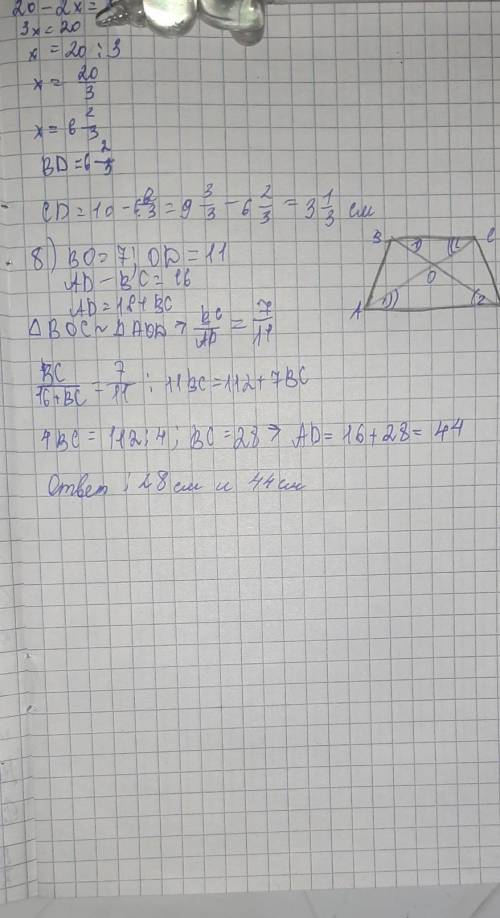 20 - 2x =
3x = 20
x = 20 : 3
x = 20/3
x = 6 2/3
BD = 6 2/3
CD = 10 - 6 2/3 = 9 3/3 - 6 2/3 = 3 1/3 см
8) BO = 7 ; OD = 11
AD - BC = 16
AD = 16 + BC
△BOC ~ △AOD > BC/AD = 7/11
BC/16+BC = 7/11 ; 11BC = 112 + 7BC
4BC = 112 : 4 ; BC = 28 > AD = 16 + 28 = 44
Ответ : 28 см и 44 см
B
C
O
A
1
2